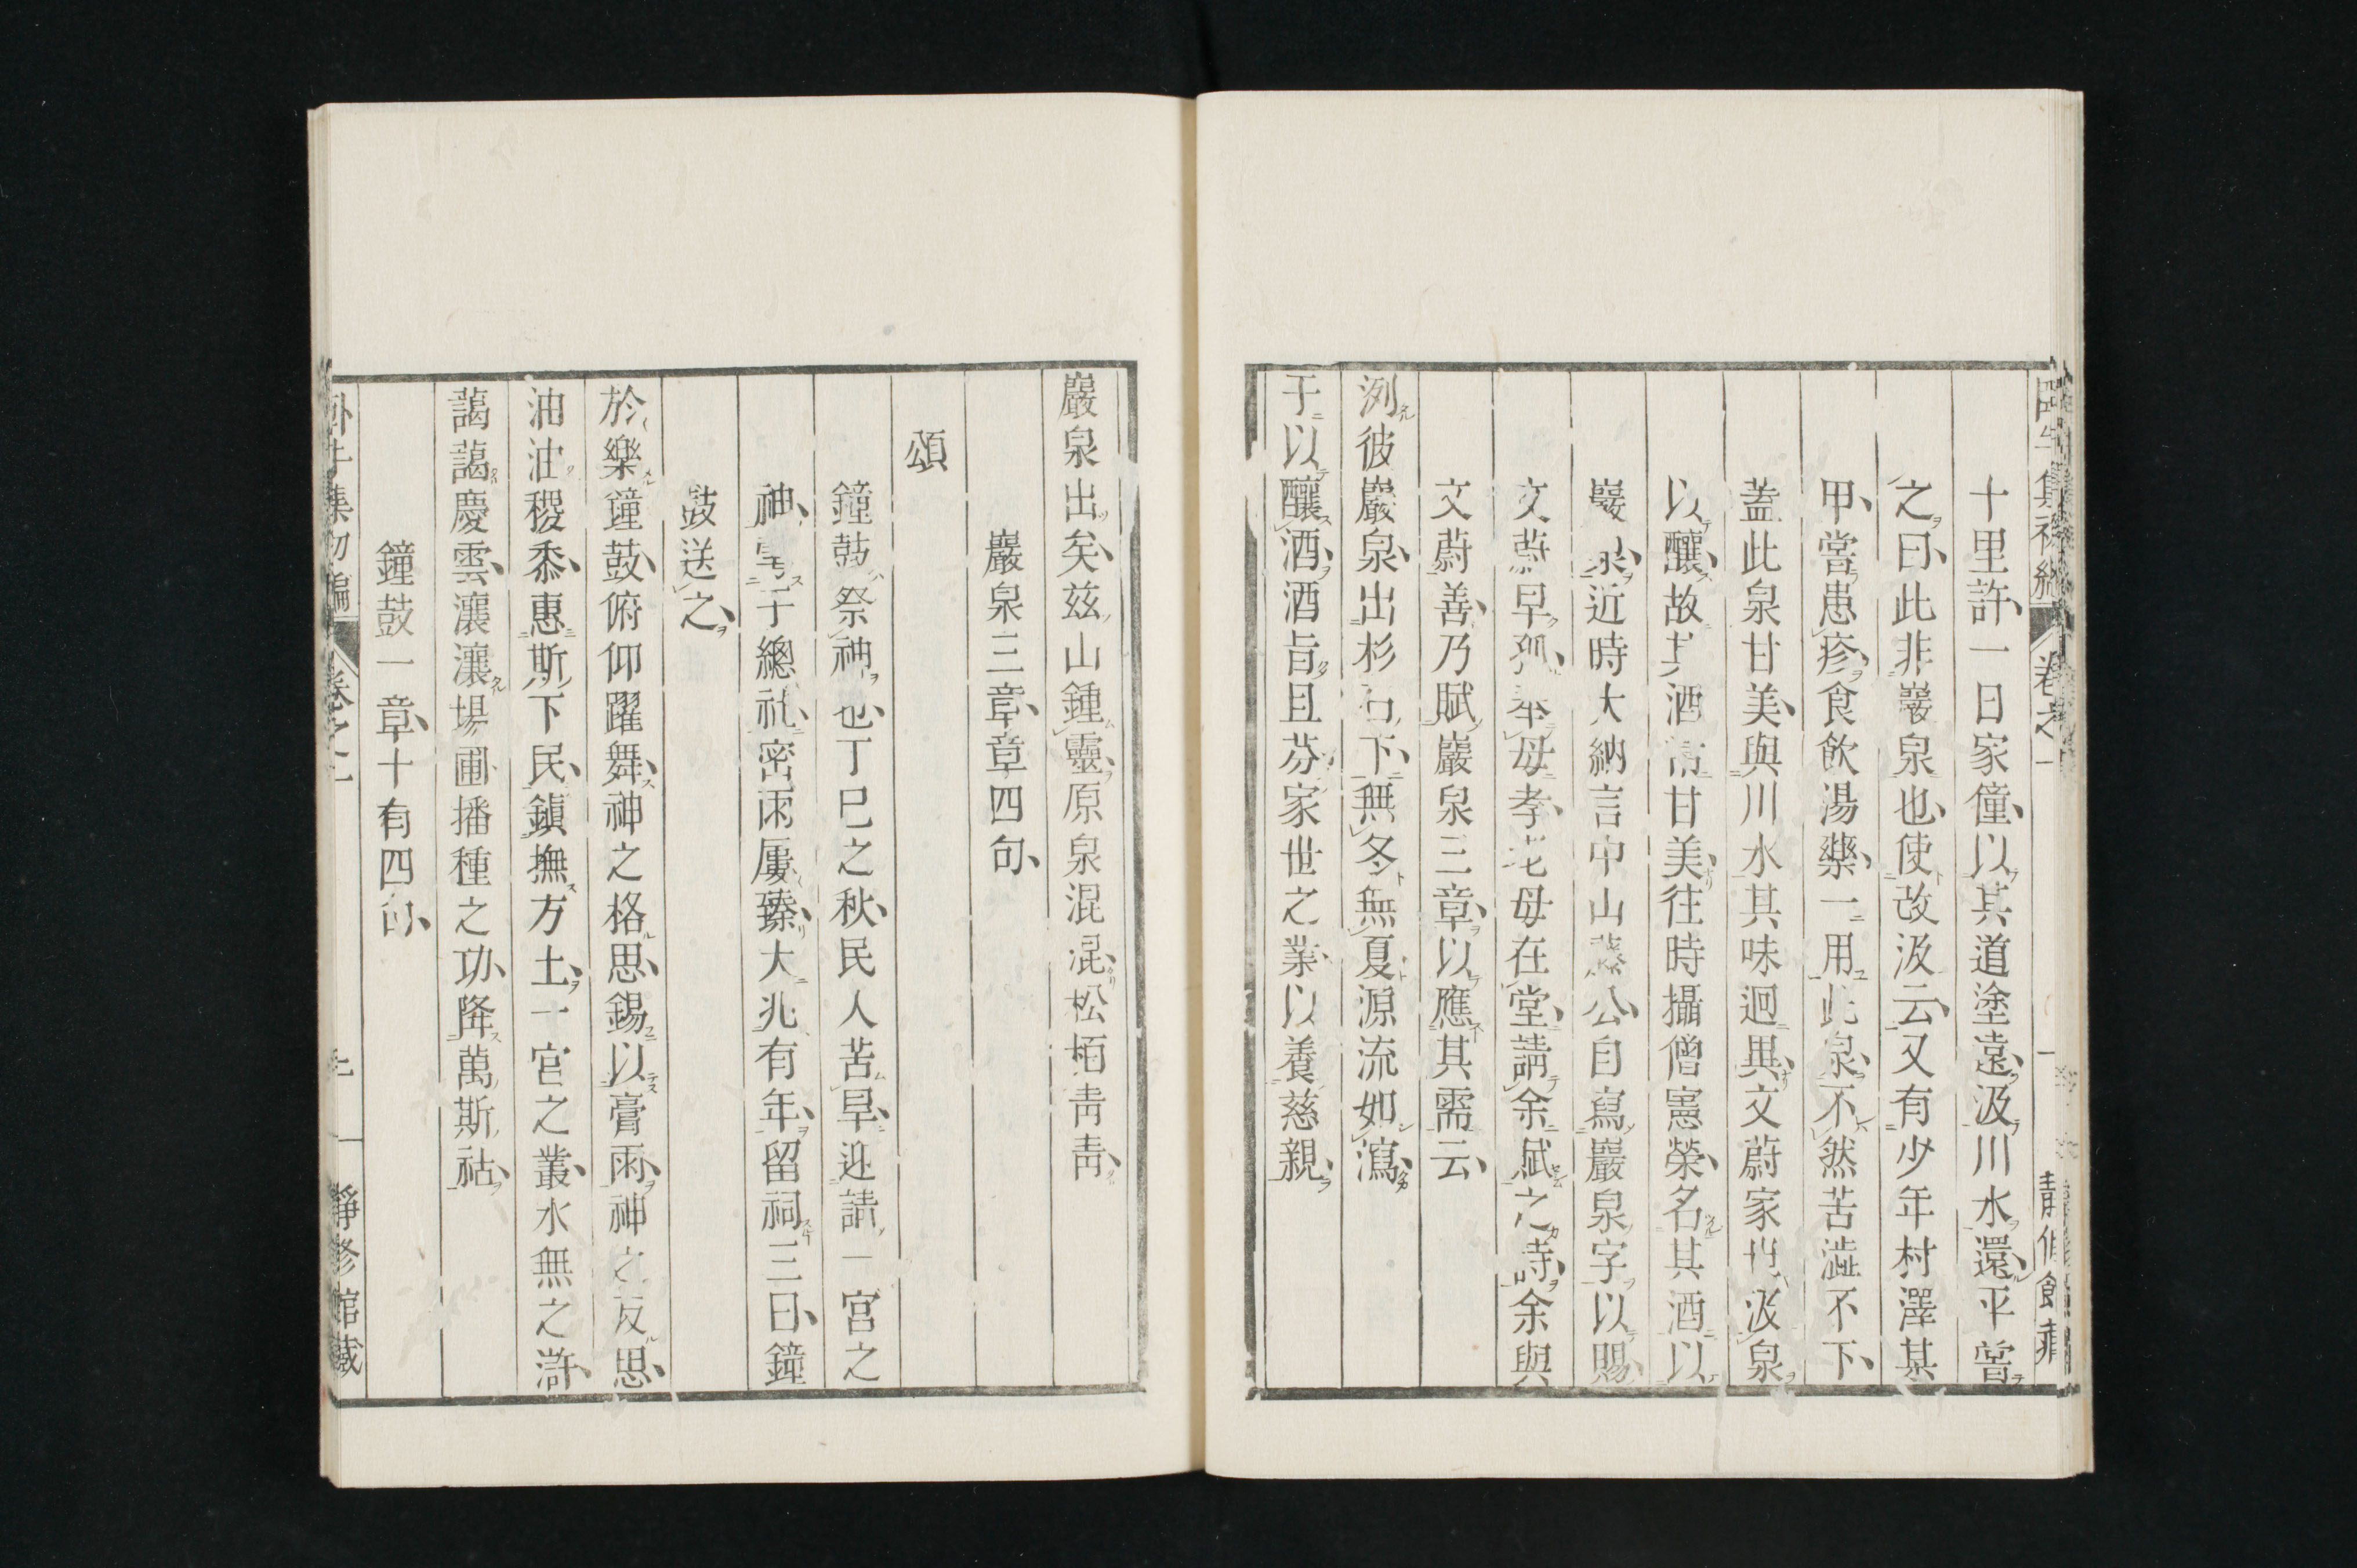 十里許一日家僮以其道塗遠汲川水還平嘗
之曰此非巖泉也使改汲云又有少年村澤某
甲嘗患疹食飲湯藥一用此泉不然苦澁不下
蓋此泉甘美與川水其味迥異文蔚家世汲泉
以釀故其酒甘美往時攝僧憲榮名其酒以
巖泉近時大納言中山公自寫巖泉字以賜
文蔚早孤奉母孝老母在堂請余賦之詩余與
文蔚善乃賦巖泉三章以應其需云
洌彼巖泉出杉石下無冬無夏源流如瀉
于以釀酒酒旨且芬家世之業以養慈親
巖泉出矣茲山鍾靈原泉混混松栢靑靑
巖泉三章章四句
頌
鐘鼓祭神也丁巳之秋民人苦旱迎請一宮之
神雩于總社密雨屢臻大兆有年留祠三日鐘
鼓送之
於樂鐘鼓俯仰躍舞神之格思錫以膏雨神之反思
油油稷黍惠斯下民鎭撫方土一宮之叢水無之滸
藹藹慶雲瀼瀼場圃播種之功降萬斯祜
鐘鼓一章十有四句
卧牛集初編 卷之一 靜修館藏